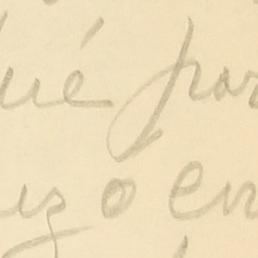 ué par
izo en